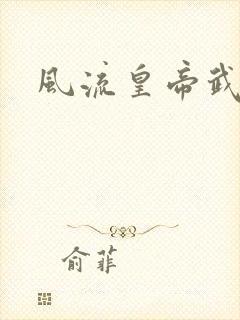 風流皇帝武
俞菲